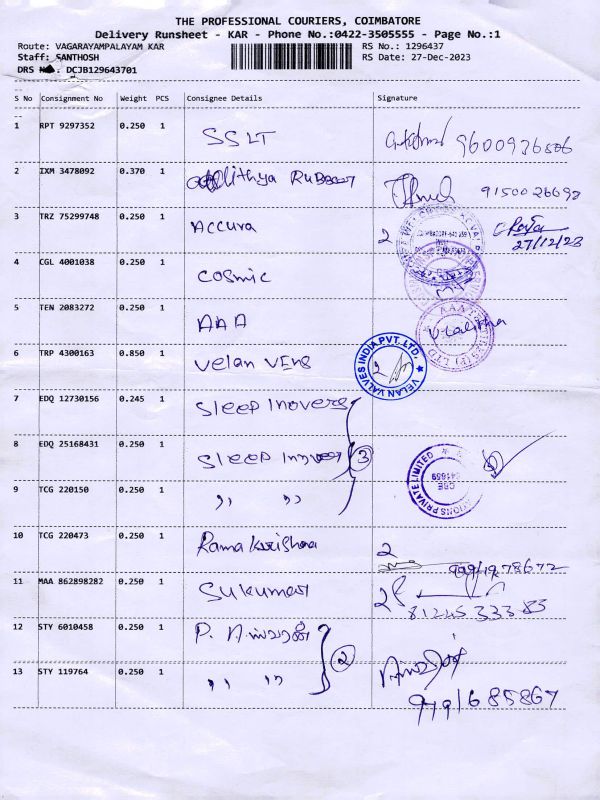 THE PROFESSIONAL COURIERS, COIMBATORE
Delivery Runsheet - KAR - Phone No.:0422-3505555 - Page No.:1
Route: VAGARAYAMPALAYAM KAR RS No.: 1296437
Staff: SANTHOSH RS Date: 27-Dec-2023
DRS DCJB129643701
S No Consignment No Weight PCS Consignee Details Signature
1 RPT 9297352 0.250 1 SSLT
2 IXM 3478092 0.370 1 9150026692
3 TRZ 75299748 0.250 1 Accura 2 27/12/23
4 CGL 4001038 0.250 1 cosmic
5 TEN 2083272 0.250 1 AAA V-Lalitha
6 TRP 4300163 0.850 1 velan VELAN VALVES INDIA PVT. LTD.
7 EDQ 12730156 0.245 1 Sleep Inovers
8 EDQ 25168431 0.250 1 Sleep 3
9 TCG 220150 0.250 1 ,, ,, PRIVATE LIMITED
10 TCG 220473 0.250 1 Rama Krishna 2
11 MAA 862898282 0.250 1 Sukumar 81245 33383
12 STY 6010458 0.250 1 P. 2
13 STY 119764 0.250 1 ,, ,,